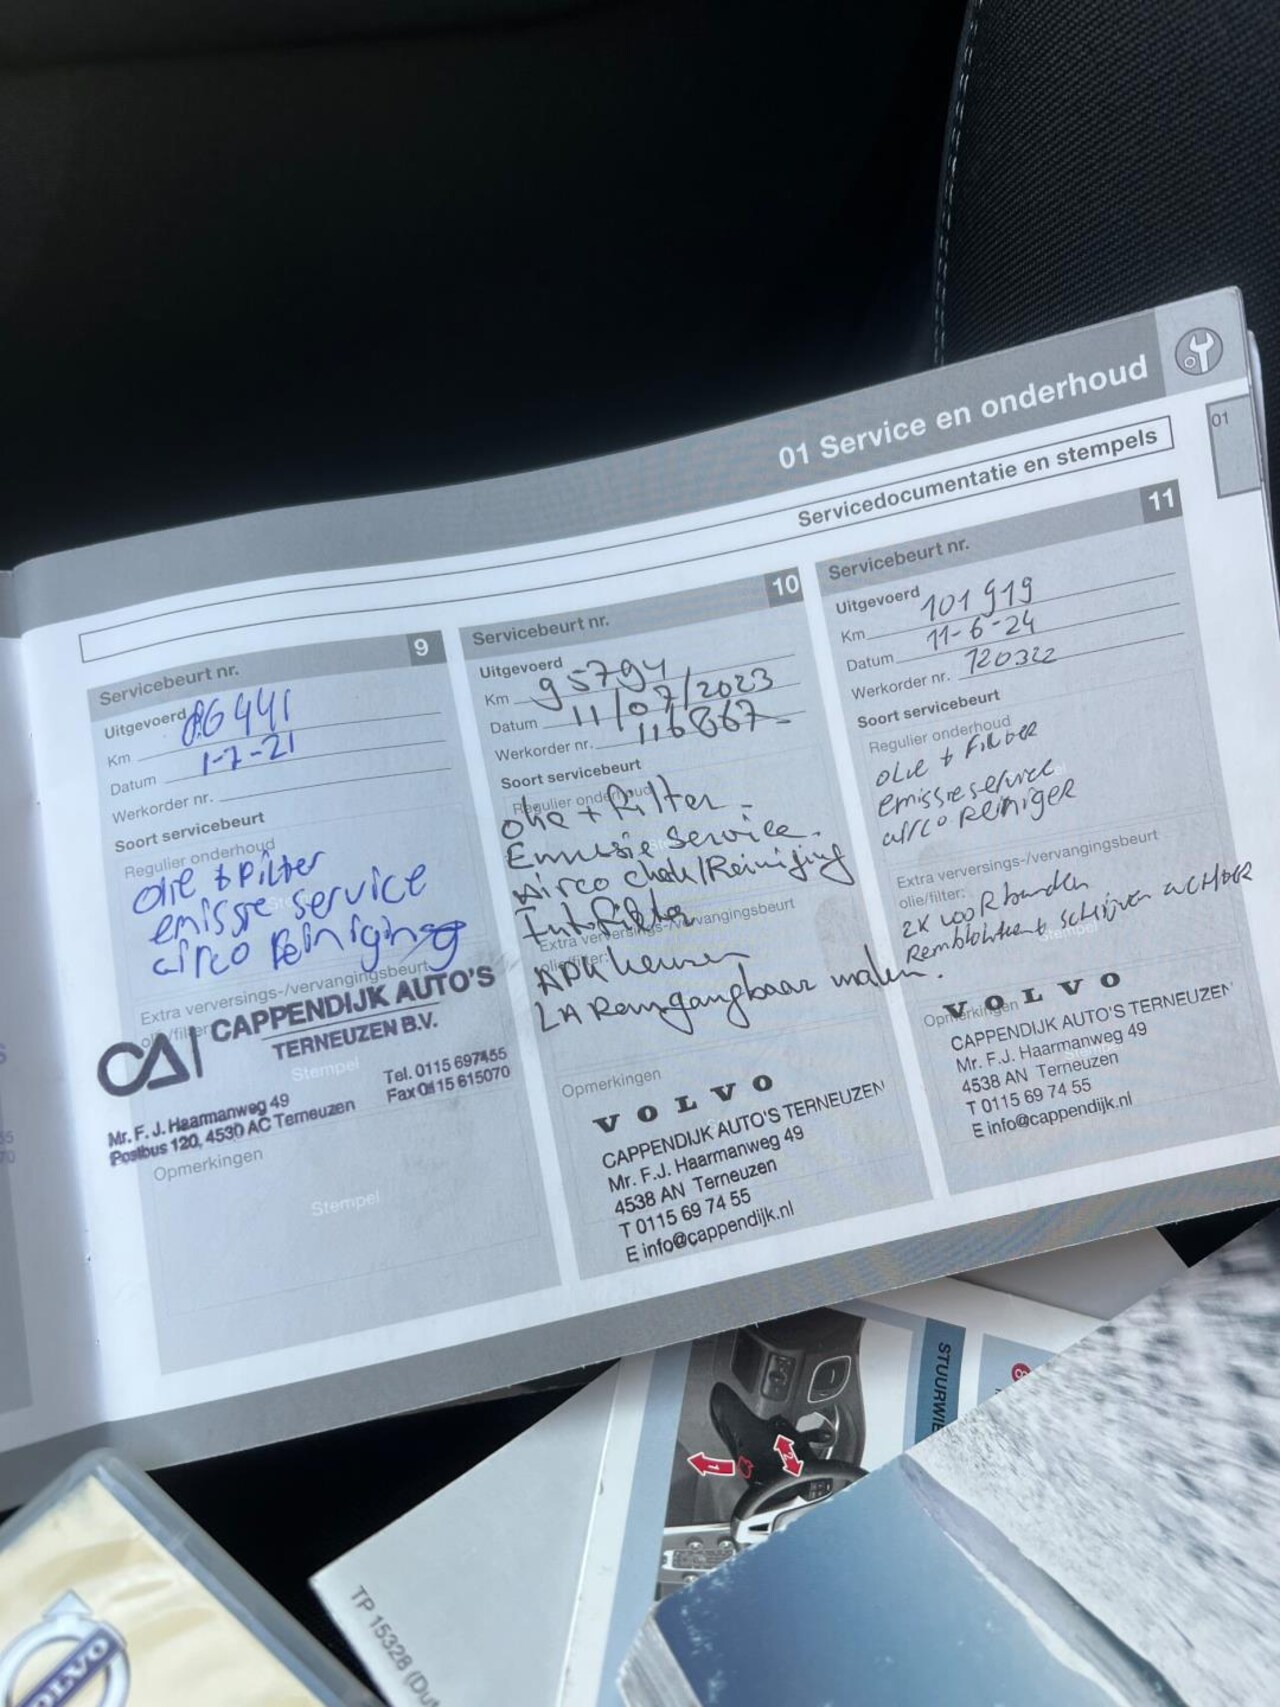 01 Service en onderhoud
01
Servicedocumentatie en stempels
Servicebeurt nr. 9
Uitgevoerd
Km 86441
Datum 1-7-21
Werkorder nr.
Soort servicebeurt
Regulier onderhoud
olie + filter
emissie service
airco reiniging
Extra verversings-/vervangingsbeurt
olie/filter:
CA CAPPENDIJK AUTO'S
TERNEUZEN B.V.
Stempel
Tel. 0115 697455
Fax 0115 615070
Mr. F. J. Haarmanweg 49
Postbus 120, 4530 AC Terneuzen
Opmerkingen
Stempel
Servicebeurt nr. 10
Uitgevoerd
Km 95794
Datum 11/07/2023
Werkorder nr. 116867
Soort servicebeurt
Regulier onderhoud
olie + filter
Emissie service.
Airco chek/Reiniging
Intrfilter
Extra verversings-/vervangingsbeurt
olie/filter:
APK keuren
LA Remgangbaar maken.
Opmerkingen
VOLVO
CAPPENDIJK AUTO'S TERNEUZEN
Mr. F.J. Haarmanweg 49
4538 AN Terneuzen
T 0115 69 74 55
E info@cappendijk.nl
Servicebeurt nr. 11
Uitgevoerd
Km 101919
Datum 11-6-24
Werkorder nr. 120322
Soort servicebeurt
Regulier onderhoud
olie + Filter
emissieservice
airco Reiniger
Extra verversings-/vervangingsbeurt
olie/filter:
2x voorbanden
Remblokken + schijven achter
Stempel
Opmerkingen
VOLVO
CAPPENDIJK AUTO'S TERNEUZEN
Mr. F.J. Haarmanweg 49
4538 AN Terneuzen
T 0115 69 74 55
E info@cappendijk.nl
STUURWIE
8
1
2
TP 15328 (Dut
VOLVO